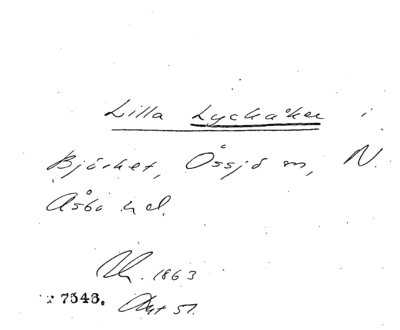 Lilla Lyckåker i
Björket, Össjö sn, N.
Åsbo hd.
1863
7546. 51.